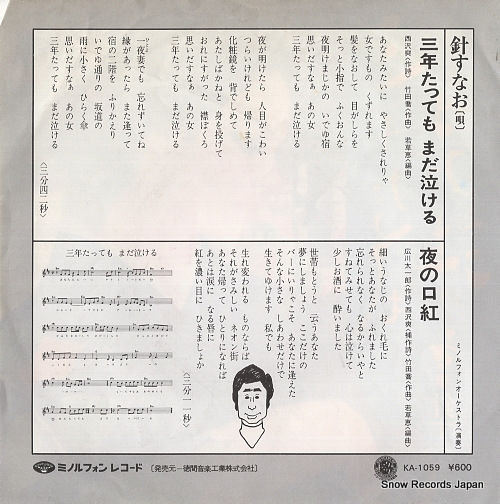 針すなお〔唄〕
三年たっても まだ泣ける
西沢爽〈作詩〉 竹田喬〈作曲〉 若草恵〈編曲〉
あなたみたいに やさしくされりゃ
女ですもの くずれます
髪をなおして 目がしらを
そっと小指で ふくおんな
夜明けまじかの いでゆ宿
思いだすなぁ あの女
三年たっても まだ泣ける
夜が明けたら 人目がこわい
つらいけれども 帰ります
化粧鏡を 背でしめて
あたしばかねと 身を投げて
おれにすがった 襟ぼくろ
思いだすなぁ あの女
三年たっても まだ泣ける
一夜妻でも 忘れずいてね
縁があったら また逢って
宿の二階を ふりかえり
いでゆ通りの 坂道の
雨に小さく ひらく傘
思いだすなぁ あの女
三年たっても まだ泣ける
〈三分四二秒〉
夜の口紅
広川太一郎〈作詩〉 西沢爽〈補作詩〉 竹田喬〈作曲〉 若草恵〈編曲〉
ミノルフォンオーケストラ〔演奏〕
細いうなじの おくれ毛に
そっとあなたが ふれました
忘れられなく なるからいやと
すねてみせても 心は泣けて
少しお酒に 酔いました
世帯もとうと 云うあなた
夢にしましょう ここだけの
バーにいりゃこそ あなたに逢えた
そんな小さな しあわせだけで
生きてゆけます 私でも
生れ変われる ものならば
それがさみしい ネオン街
あなた帰って ひとりになれば
あとは涙に なる唇に
紅を濃い目に ひきましょか
〈三分一一秒〉
三年たっても まだ泣ける
ミノルフォン レコード
〔発売元―徳間音楽工業株式会社〕
KA-1059 ¥600
Snow Records Japan
snowrecords.jp